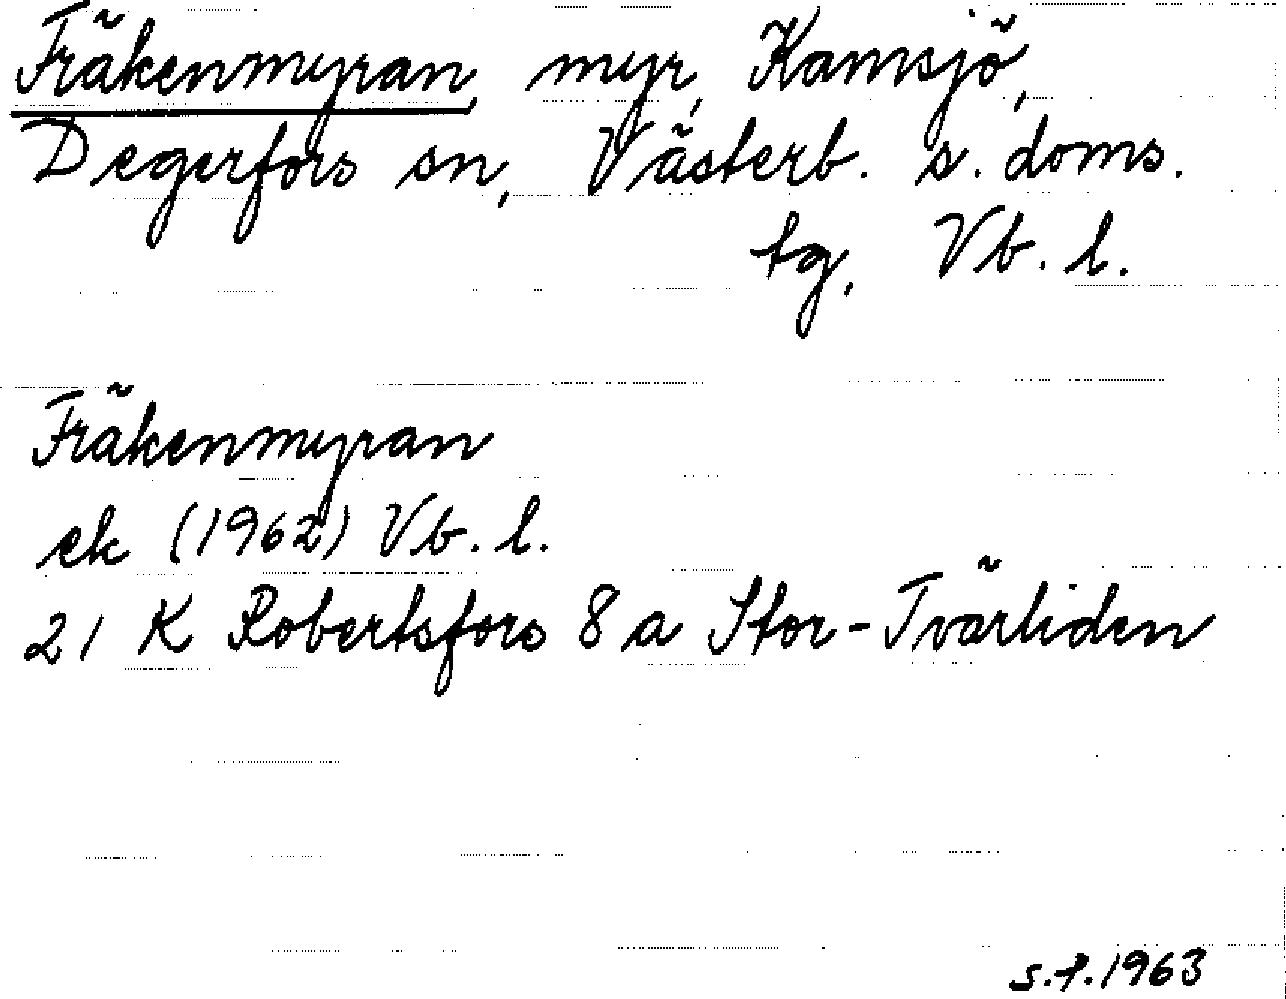 Fräkenmyran, myr, Kamsjö,
Degerfors sn, Västerb. s. doms.
tg, Vb. l.
Fräkenmyran
ek (1962) Vb. l.
21 K Robertsfors 8 a Stor-Tvärliden
s.f. 1963